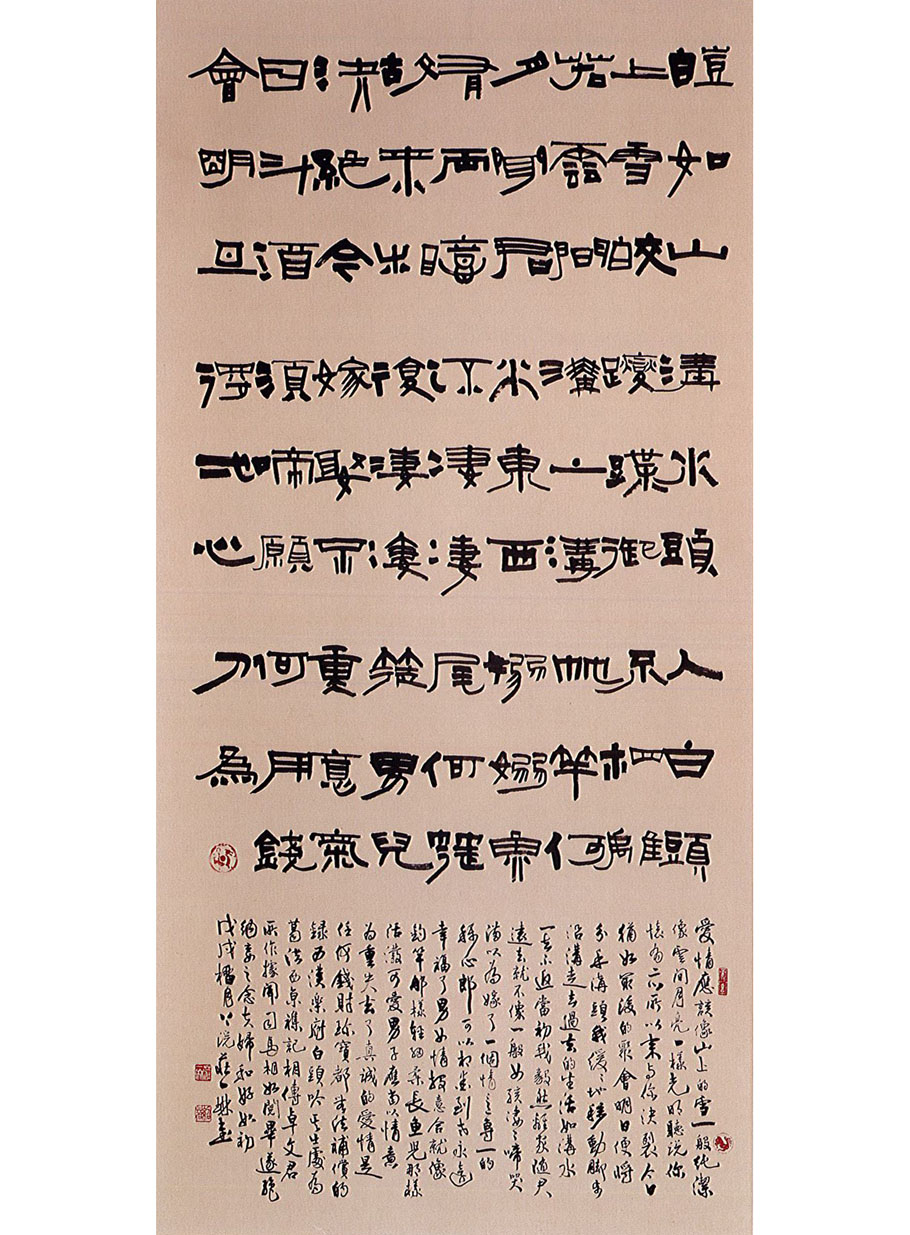 皚如山
上雪皎
若雲間
月聞君
有兩意
故來相
決絕今
日斗酒
會明旦
溝水頭
躞蹀御
溝上溝
水東西
流淒淒
復淒淒
嫁娶不
須啼願
得一心
人白頭
不相離
竹竿何
嫋嫋魚
尾何簁
簁男兒
重意氣
何用錢
刀為
愛情應該像山上的雪一般純潔
像雲間月亮一樣光明聽說你
懷有二心所以來與你決裂今日
猶如最後的聚會明日便將
分手溝頭我緩緩地移動腳步
沿溝走去過去的生活如溝水
一去不返當初我毅然離家隨君
遠去就不像一般女孩淒淒啼哭
滿以為嫁了一個情意專一的
稱心郎可以相愛到老永遠
幸福了男女情投意合就像
釣竿那樣輕細柔長魚兒那樣
活潑可愛男子應當以情意
為重失去了真誠的愛情是
任何錢財珍寶都無法補償的
錄西漢樂府白頭吟其出處為
葛洪西京雜記相傳卓文君
所作據聞司馬相如閱畢遂絕
納妾之念夫婦和好如初
戊戌榴月